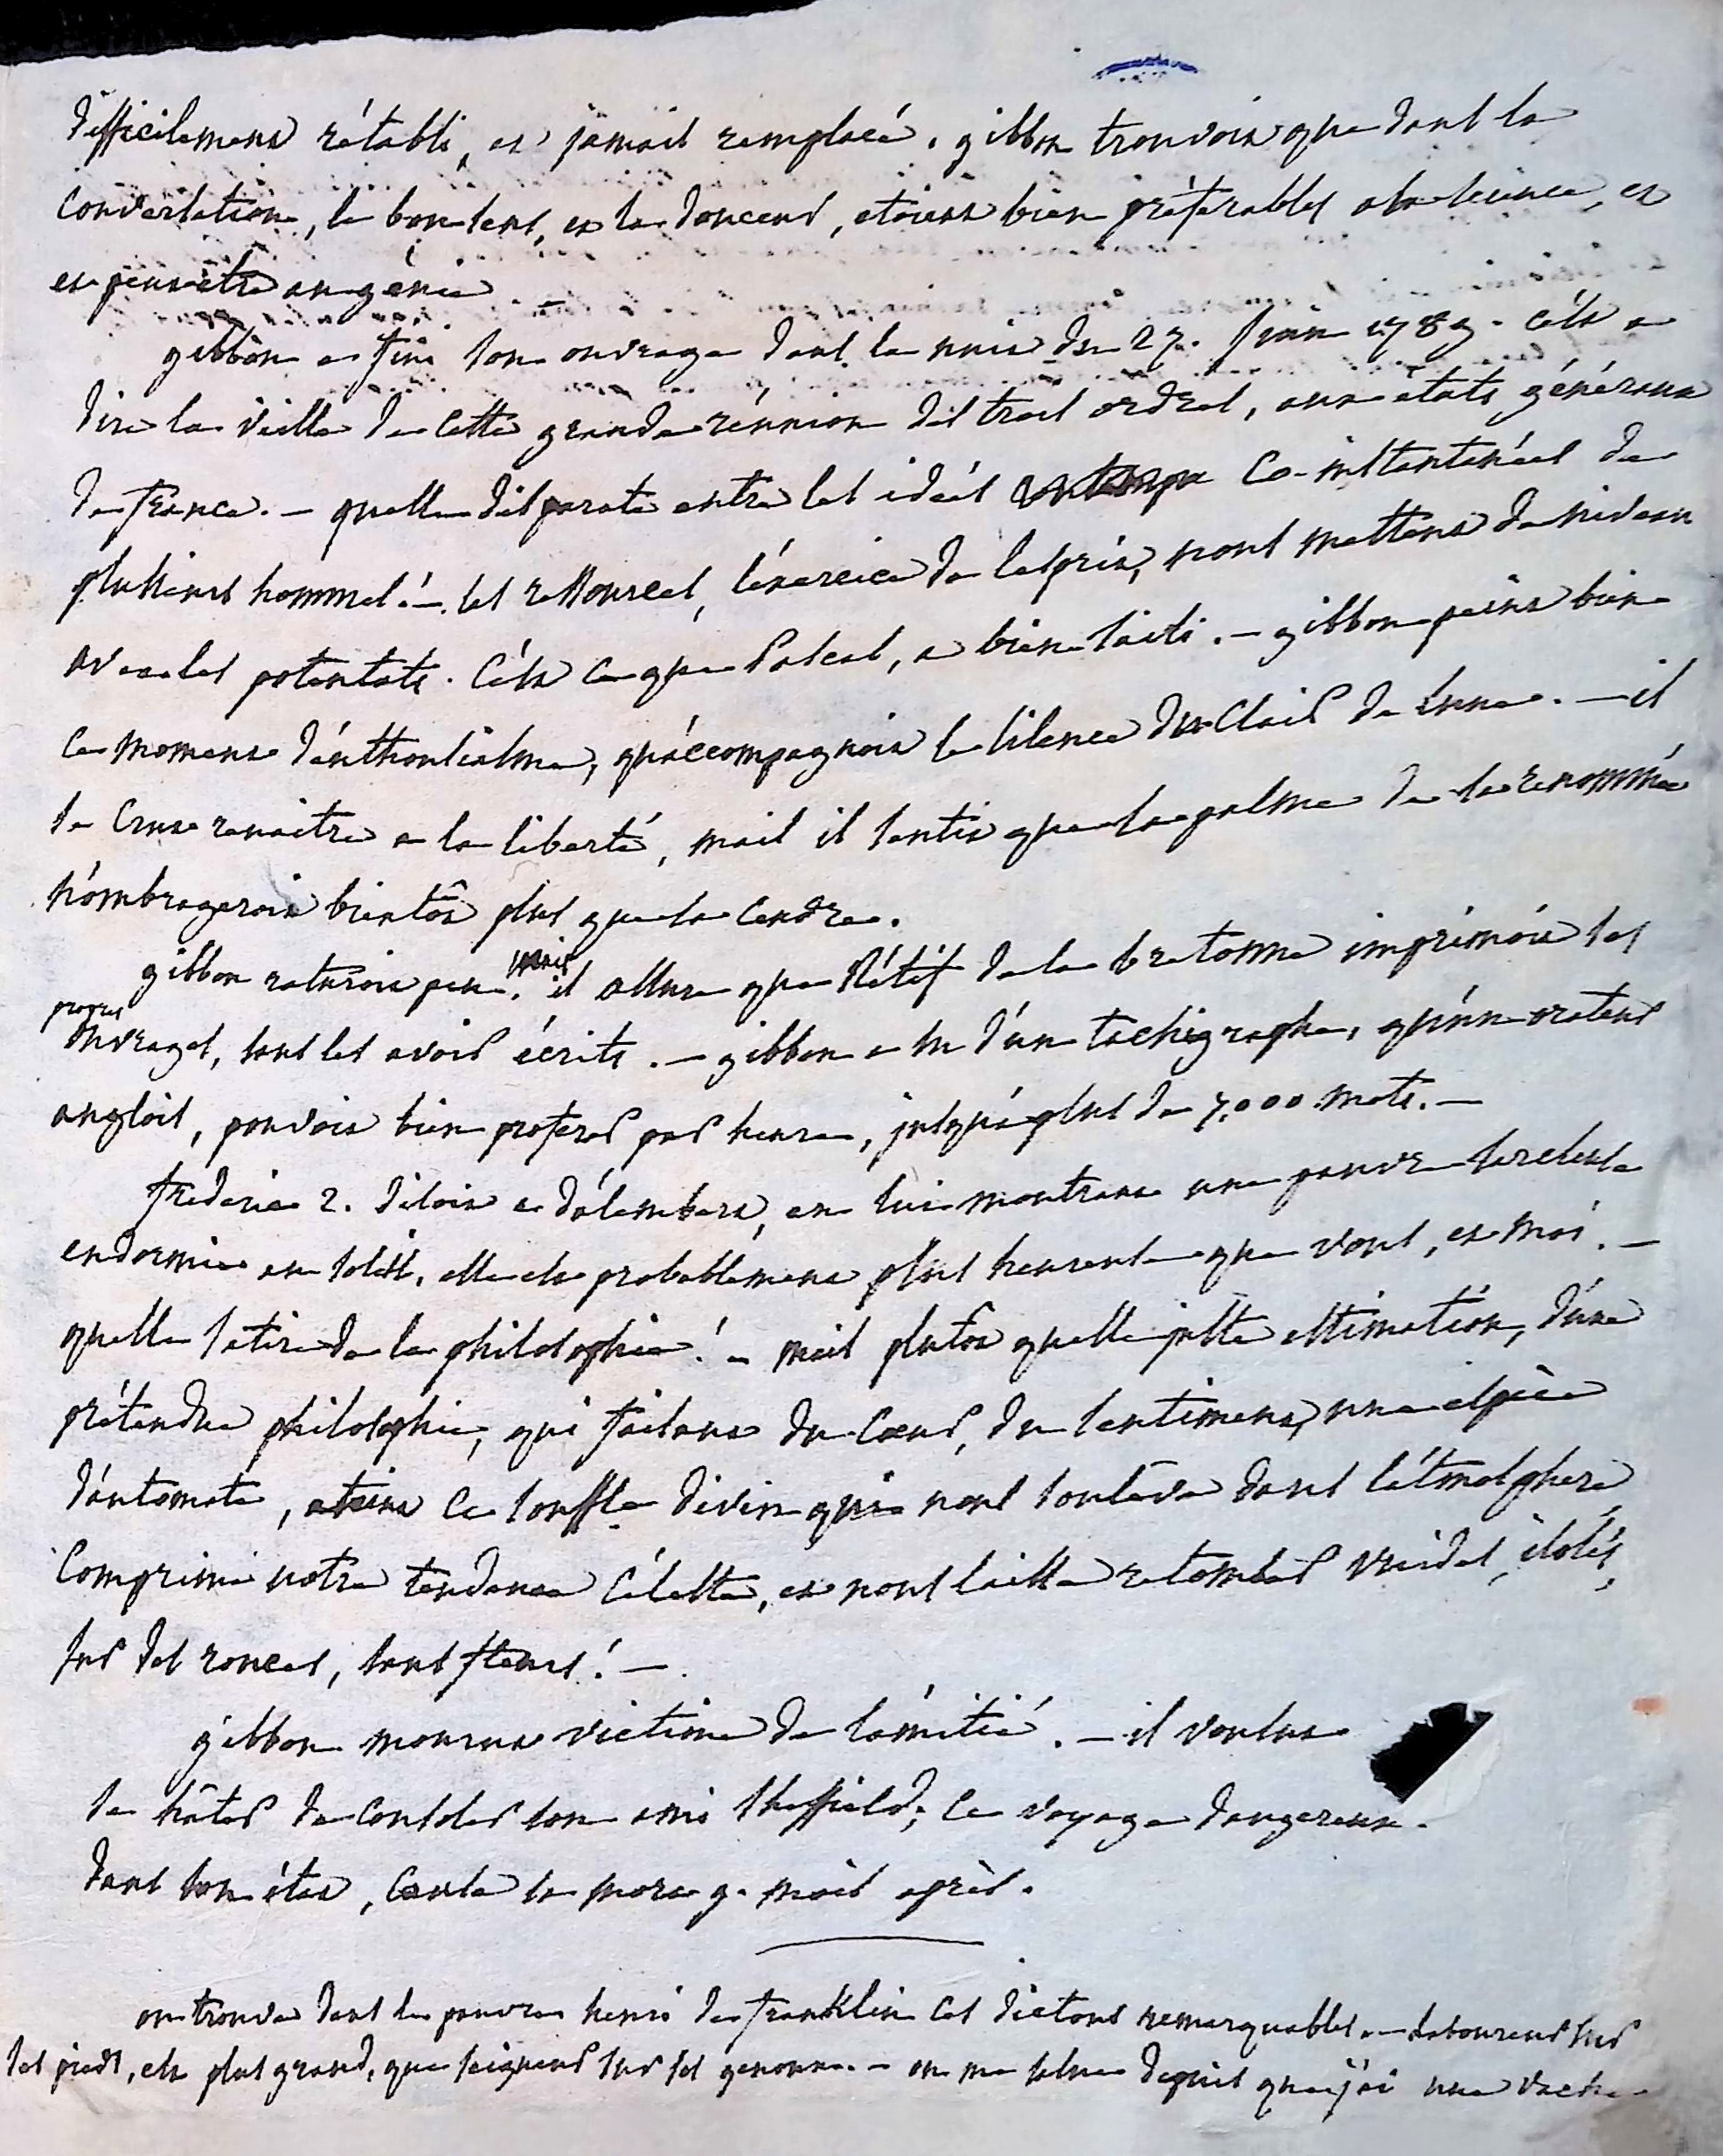 difficilement rétabli, et jamais remplacé. gibbon trouvoit que dans la
conversation, le bon sens, et la douceur, etoient bien préférables a la science, et
et peut etre au génie
gibbon a fini son ouvrage dans la nuit du 27. Juin 1789. c'ést a
dire la veille de cette grande réunion des trois ordres, aux états généraux
de france. – quelle disparate entre les idées co-instantanées de
plusieurs hommes! – les ressources, l'éxercice de l'esprit, nous mettent de niveau
avec les potentats. c'ést ce que Pascal, a bien saisi. – gibbon peint bien
ce moment d'énthousiasme, qu'áccompagnoit le silence du clair de lune. – il
se crut renaitre a la liberté, mais il sentit que la palme de la renommée
n'ómbrageroit bientôt plus que sa cendre.
gibbon raturoit peu. mais il assure que Rétif de la bretonne imprimoit ses
propres
ouvrages, sans les avoir écrits. – gibbon a su d'ún tachigraphe, qu'ún orateur
anglois, pouvoit bien proferer par heure, jusqu'á plus de 7,000 mots. –
frederic 2. disoit a d'álembert, en lui montrant une pauvre sarcleuse
endormie au soleil, elle est probablement plus heureuse que vous, et moi. –
quelle satire de la philosophie! – mais plutot quelle juste estimation, d'úne
prétendue philosophie, qui faisant du coeur, du sentiment, une espèce
d'áutomate, eteint ce souffle divin qui nous souleve dans l'átmosphere
comprime notre tendance céleste, et nous laisse retomber vuides, isolés,
sur des ronces, sans fleurs! –
gibbon mourut victime de l'ámitié. – il voulut
se hâter de consoler son ami Sheffield; ce voyage dangereux
dans son état, causa sa mort 9. mois après.
on trouve dans le pauvre henri de franklin ces dictons remarquables. – laboureur sur
ses pieds, est plus grand, que seigneur sur ses genoux. – on me salue depuis que j'ai une vache